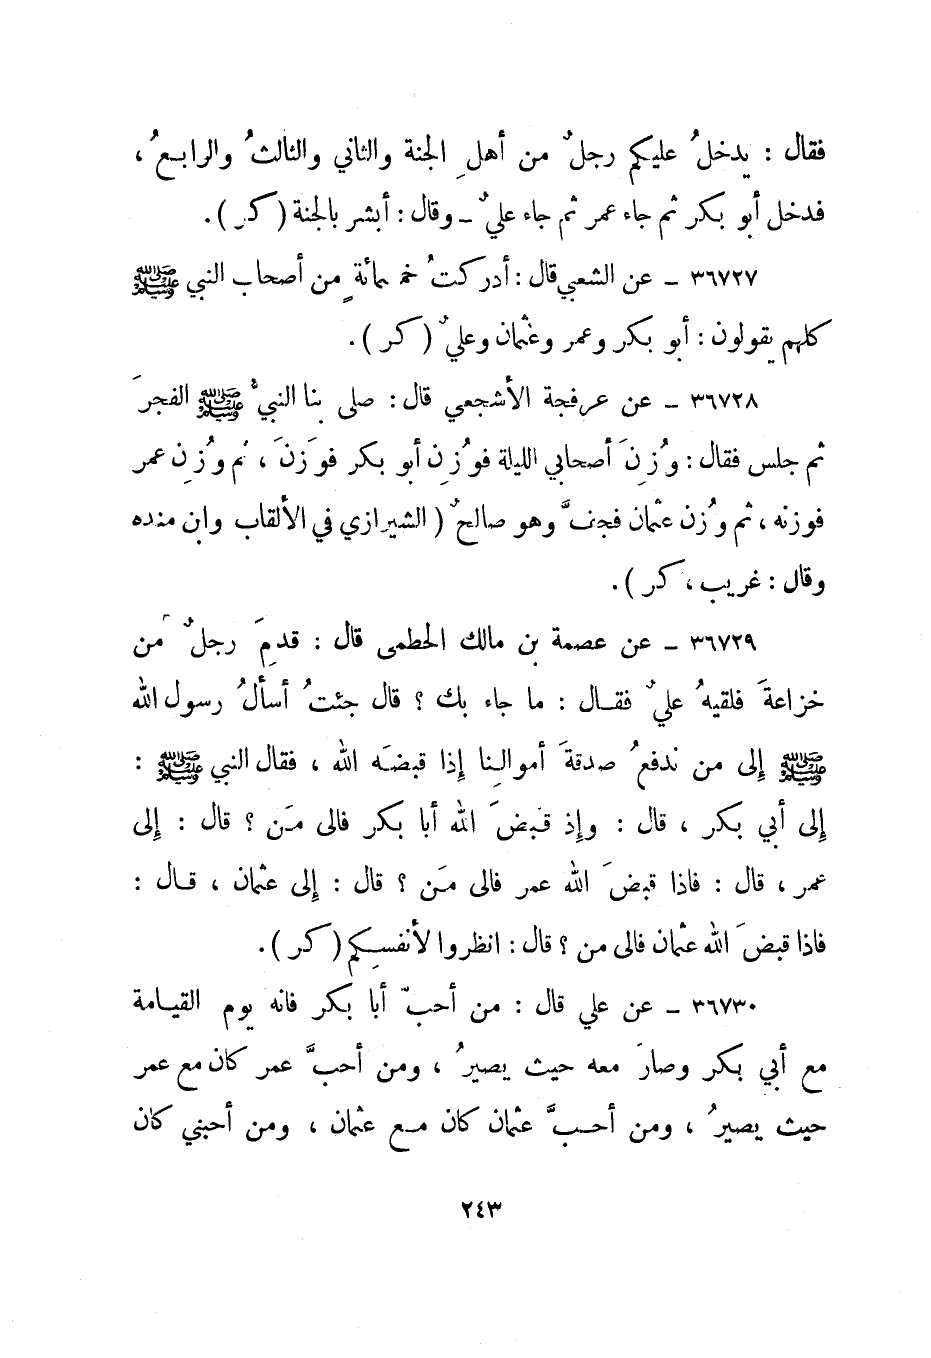 فقال : يدخلُ عليكم رجلٌ من أهلِ الجنة والثاني والثالثُ والرابعُ ،
فدخل أبو بكر ثم جاء عمر ثم جاء عليٌ ـ وقال : أبشر بالجنة ( كر ) .
٣٦٧٢٧ ـ عن الشعبي قال : أدركتُ خمسمائةٍ من أصحاب النبي ﷺ
كلهم يقولون : أبو بكر وعمر وعثمان وعليٌ ( كر ) .
٣٦٧٢٨ ـ عن عرفجة الأشجعي قال : صلى بنا النبيُّ ﷺ الفجرَ
ثم جلس فقال : وُزِنَ أصحابي الليلة فوُزِن أبو بكر فوَزنَ ، ثم وُزِن عمر
فوزنه ، ثم وُزن عثمان فخفَّ وهو صالحٌ ( الشيرازي في الألقاب وابن منده
وقال : غريب ، كر ) .
٣٦٧٢٩ ـ عن عصمة بن مالك الخطمى قال : قدمَ رجلٌ من
خزاعةَ فلقيهُ عليٌ فقال : ما جاء بك ؟ قال جئتُ أسألُ رسول الله
ﷺ إلى من ندفعُ صدقةَ أموالِنا إذا قبضَه الله ، فقال النبي ﷺ :
إلى أبي بكر ، قال : وإذ قبضَ الله أبا بكر فالى مَن ؟ قال : إلى
عمر ، قال : فاذا قبضَ الله عمر فالى مَن ؟ قال : إلى عثمان ، قال :
فاذا قبضَ الله عثمان فالى من ؟ قال : انظروا لأنفسِكم ( كر ) .
٣٦٧٣٠ ـ عن علي قال : من أحبّ أبا بكر فانه يوم القيامة
مع أبي بكر وصارَ معه حيث يصيرُ ، ومن أحبَّ عمر كان مع عمر
حيث يصيرُ ، ومن أحبَّ عثمان كان مع عثمان ، ومن أحبني كان
٢٤٣